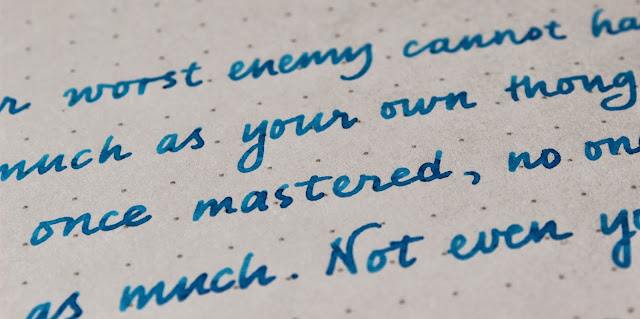 r worst enemy cannot ha
much as your own thoug
once mastered, no on
as much. Not even yo